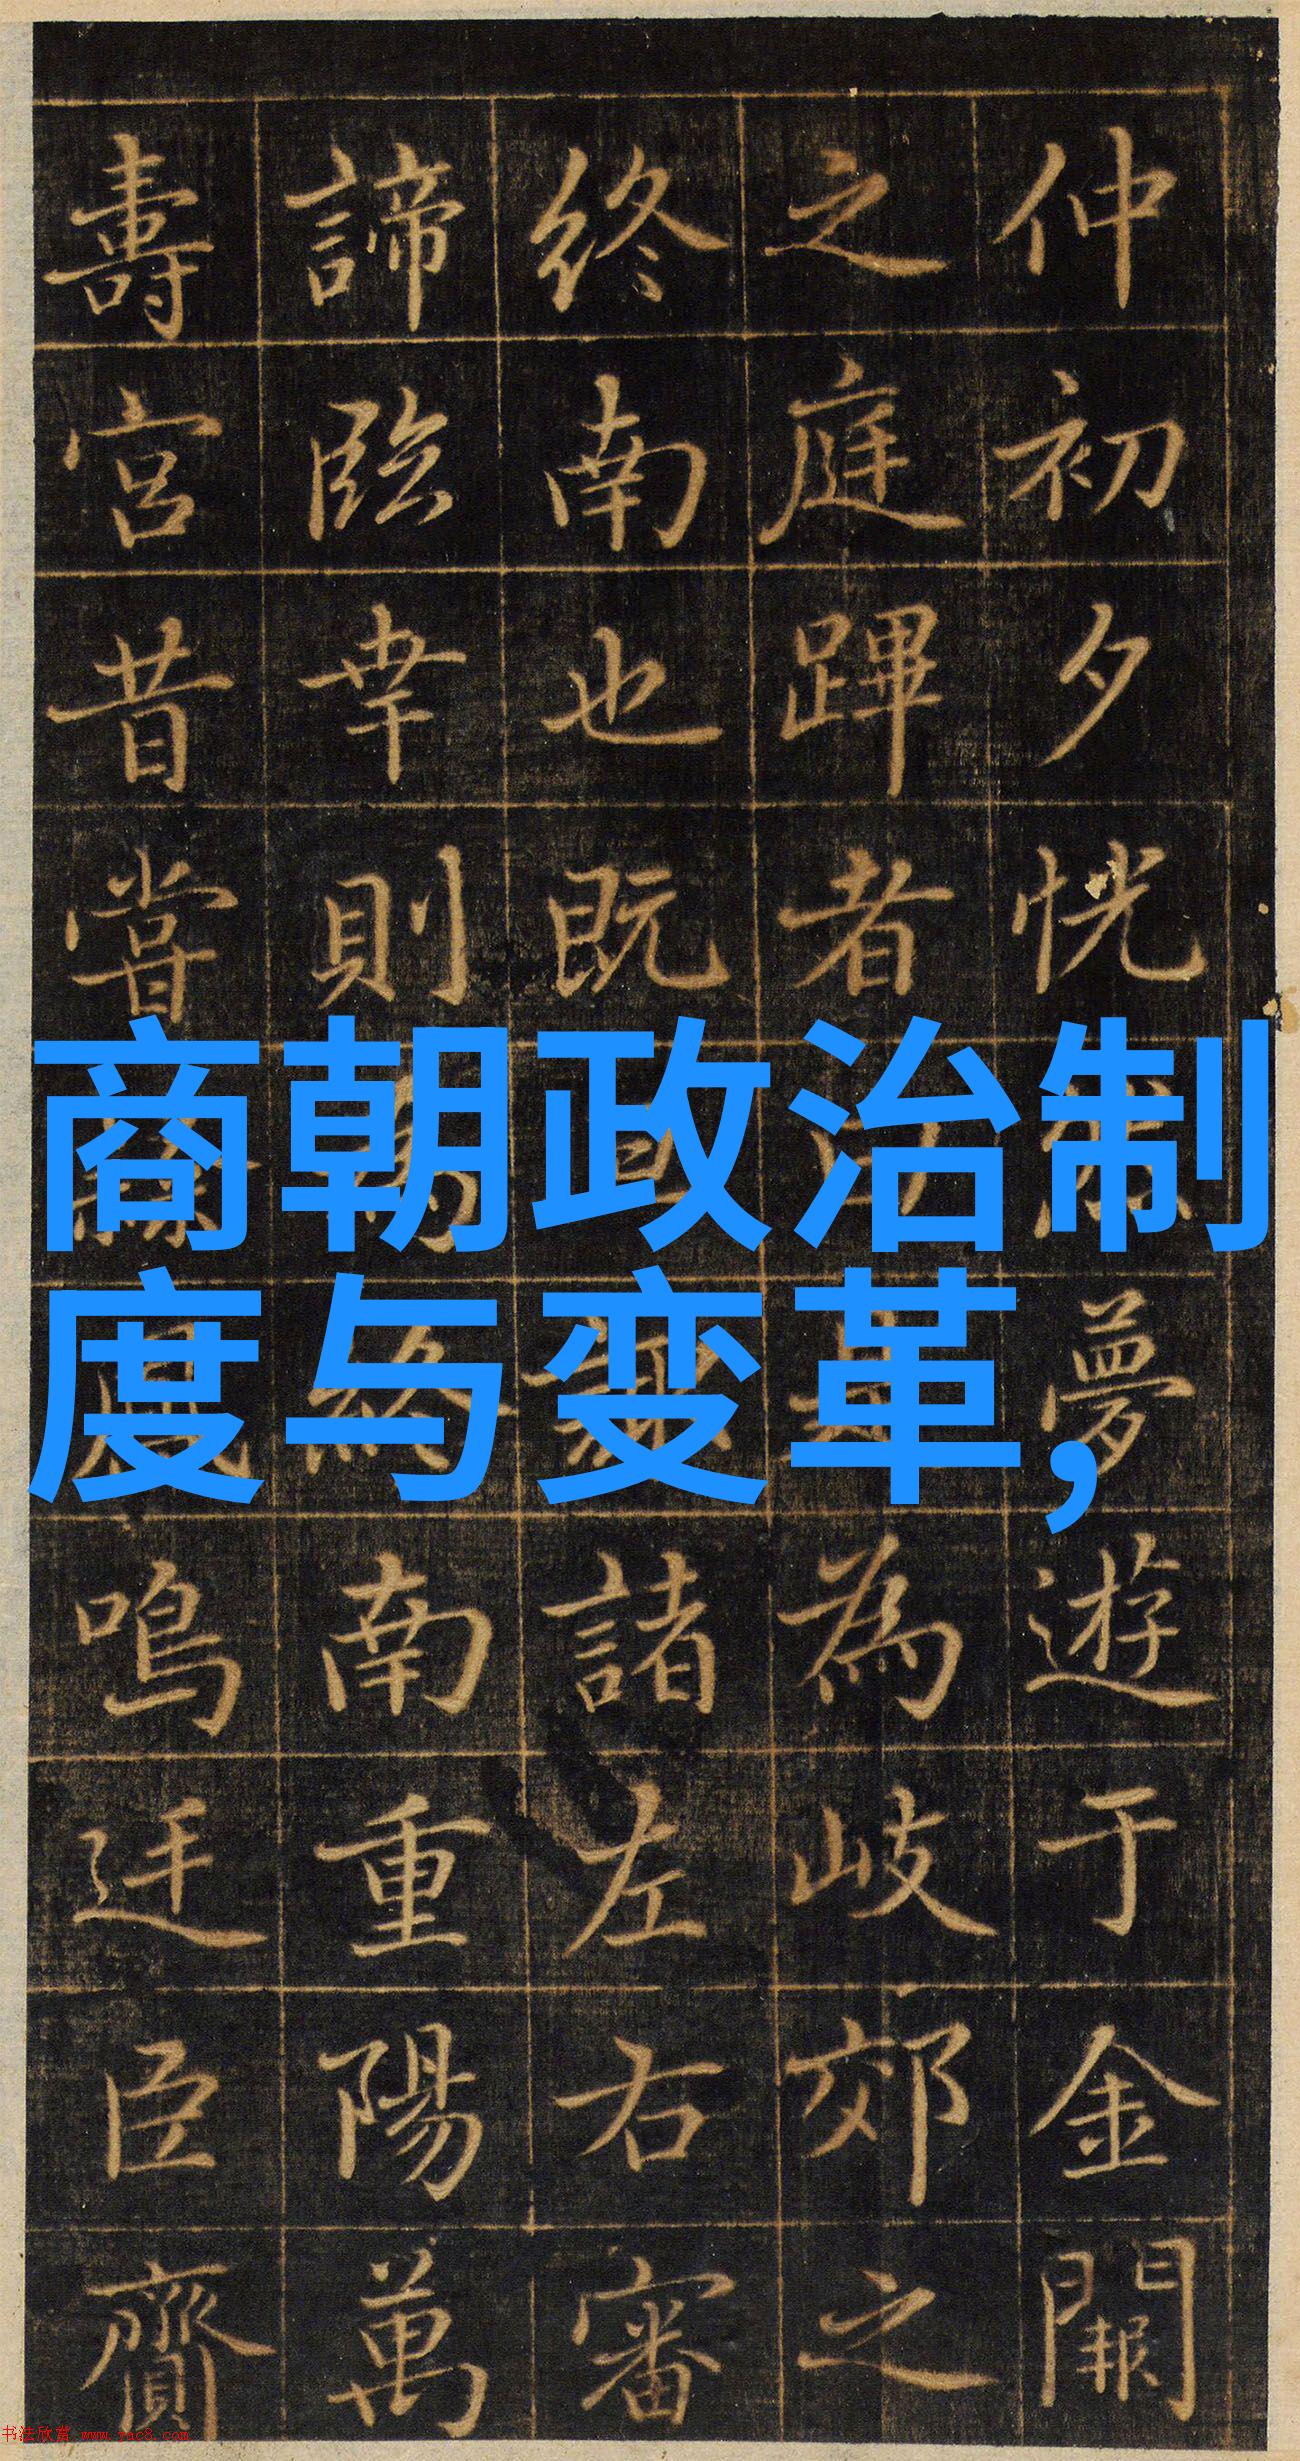 仲初夕恍夢遊于金闕
之庭蹕者為岐郊之
終南也既諸左右審
諦臨幸則終南重陽萬
壽宮昔嘗鳴迋臣齎
商朝政治制
度与变革,
书法欣赏 www.yac8.com